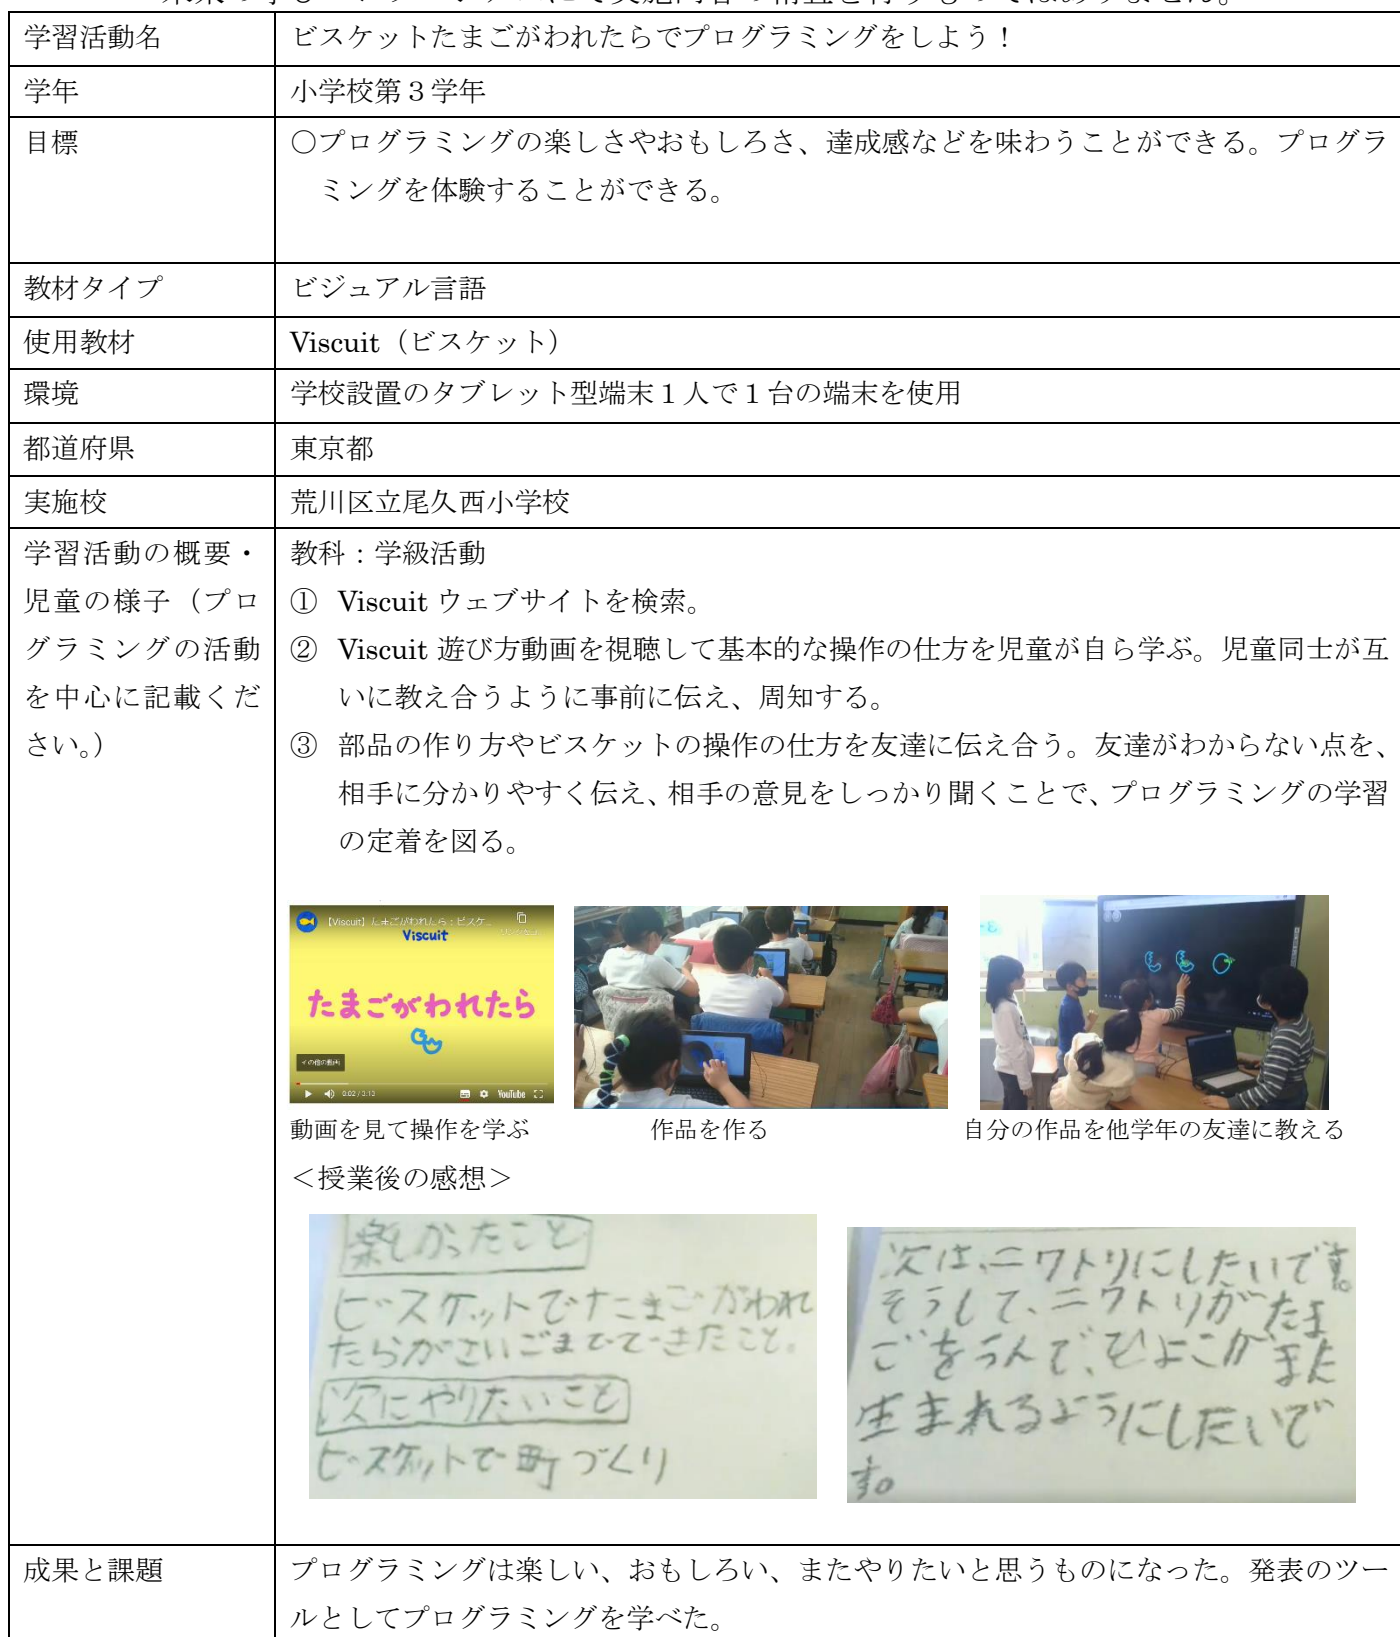 学習活動名
ビスケットたまごがわれたらでプログラミングをしよう！
学年
小学校第３学年
目標
○プログラミングの楽しさやおもしろさ、達成感などを味わうことができる。プログラ
ミングを体験することができる。
教材タイプ
ビジュアル言語
使用教材
Viscuit（ビスケット）
環境
学校設置のタブレット型端末１人で１台の端末を使用
都道府県
東京都
実施校
荒川区立尾久西小学校
学習活動の概要・
児童の様子（プロ
グラミングの活動
を中心に記載くだ
さい。）
教科：学級活動
① Viscuit ウェブサイトを検索。
② Viscuit 遊び方動画を視聴して基本的な操作の仕方を児童が自ら学ぶ。児童同士が互
いに教え合うように事前に伝え、周知する。
③ 部品の作り方やビスケットの操作の仕方を友達に伝え合う。友達がわからない点を、
相手に分かりやすく伝え、相手の意見をしっかり聞くことで、プログラミングの学習
の定着を図る。
【Viscuit】たまごがわれたら：ビスケ...
Viscuit
たまごがわれたら
その他の動画
0:02 / 3:13
YouTube
動画を見て操作を学ぶ
作品を作る
自分の作品を他学年の友達に教える
＜授業後の感想＞
楽しかったこと
ビスケットでたまごがわれ
たらがさいごまでできたこと。
次にやりたいこと
ビスケットで町づくり
次は、ニワトリにしたいです。
そうして、ニワトリがたま
ごをうんで、ひよこがまた
生まれるようにしたいで
す。
成果と課題
プログラミングは楽しい、おもしろい、またやりたいと思うものになった。発表のツー
ルとしてプログラミングを学べた。